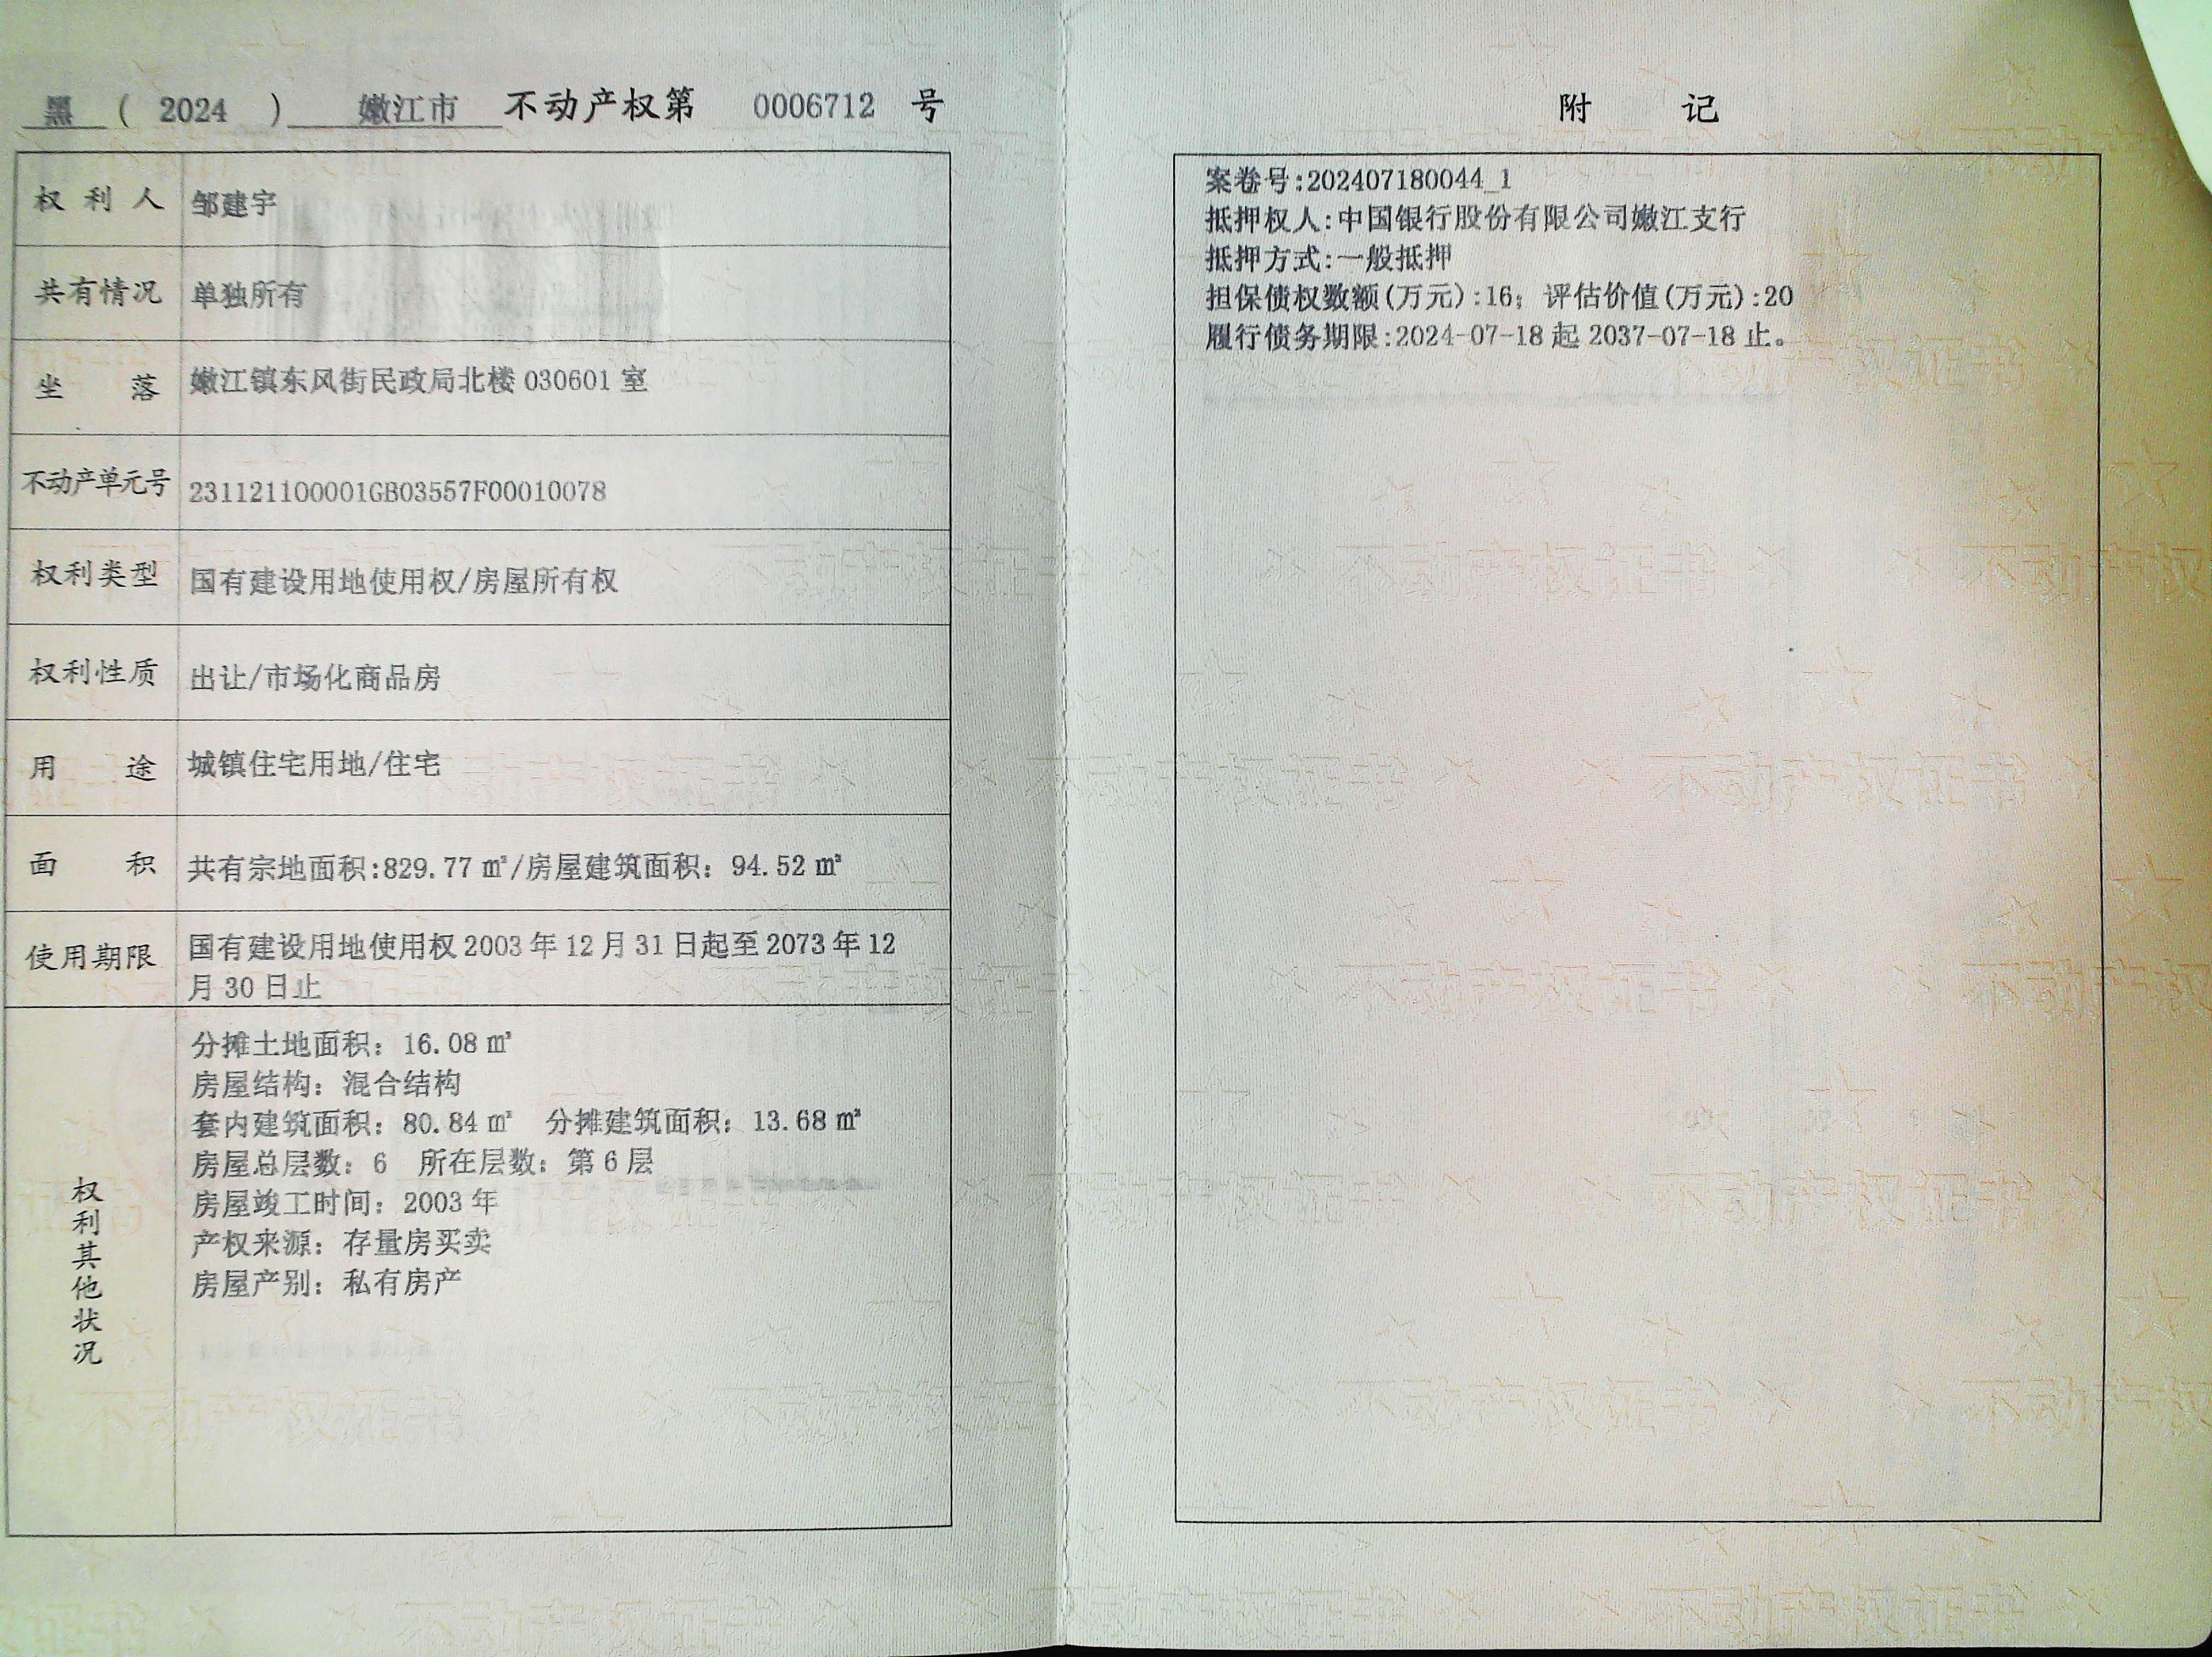 黑 ( 2024 ) 嫩江市 不动产权第 0006712 号
权利人 邹建宇
共有情况 单独所有
坐落 嫩江镇东风街民政局北楼 030601 室
不动产单元号 231121100001GB03557F00010078
权利类型 国有建设用地使用权/房屋所有权
权利性质 出让/市场化商品房
用途 城镇住宅用地/住宅
面积 共有宗地面积:829.77 ㎡/房屋建筑面积：94.52 ㎡
使用期限 国有建设用地使用权 2003 年 12 月 31 日起至 2073 年 12
月 30 日止
权利其他状况
分摊土地面积：16.08 ㎡
房屋结构：混合结构
套内建筑面积：80.84 ㎡ 分摊建筑面积：13.68 ㎡
房屋总层数：6 所在层数：第 6 层
房屋竣工时间：2003 年
产权来源：存量房买卖
房屋产别：私有房产
附记
案卷号:202407180044_1
抵押权人:中国银行股份有限公司嫩江支行
抵押方式:一般抵押
担保债权数额(万元):16；评估价值(万元):20
履行债务期限:2024-07-18 起 2037-07-18 止。